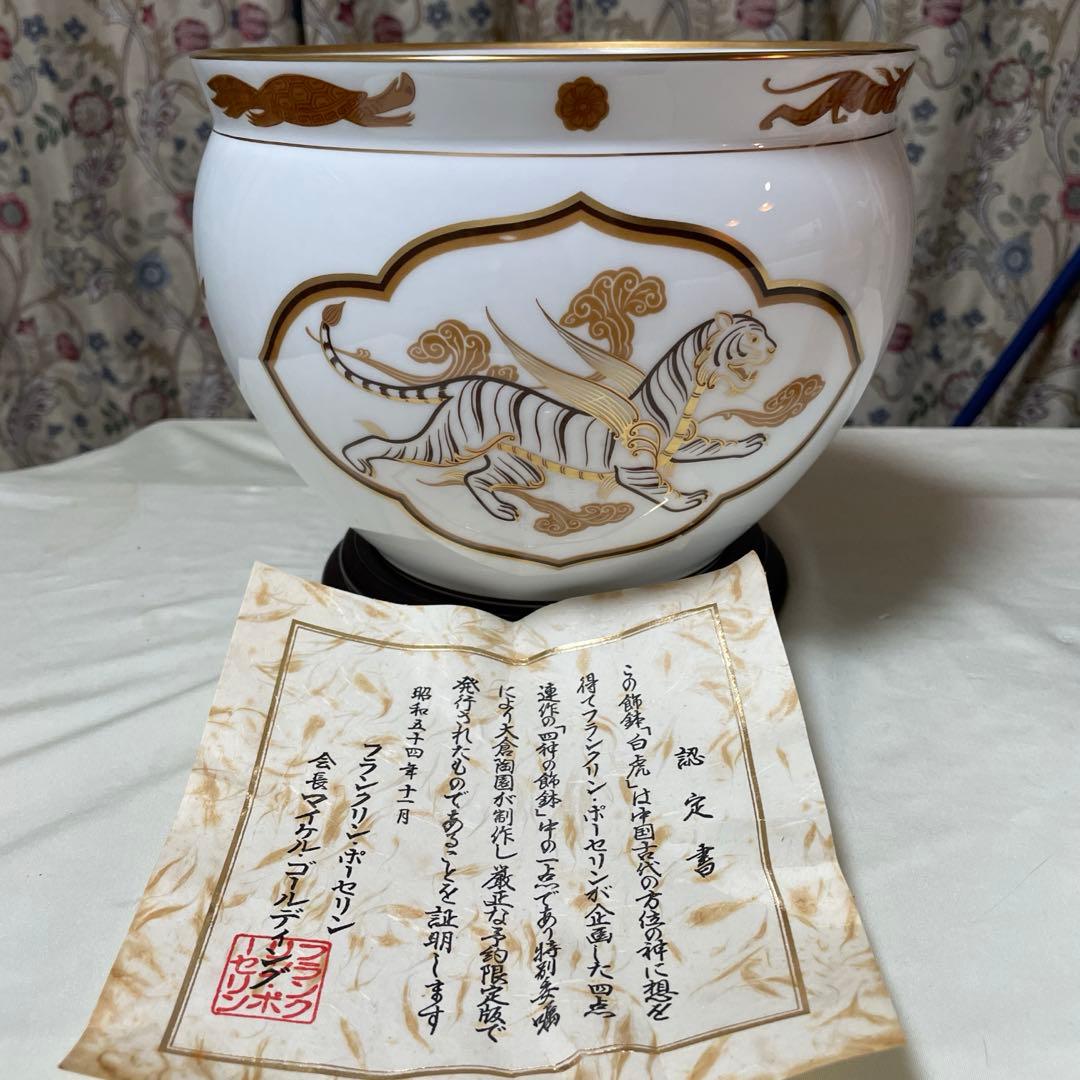 認定書
この飾鉢「白虎」は中国古代の方位の神に想を
得てフランクリン・ポーセリンが企画した四点
連作の「四神の飾鉢」中の一点であり特別委嘱
により大倉陶園が制作し厳正な予約限定版で
発行されたものであることを証明します
昭和五十四年十一月
フランクリン・ポーセリン
会長マイケル・ゴールディング
フランク
リン・ポ
ーセリン